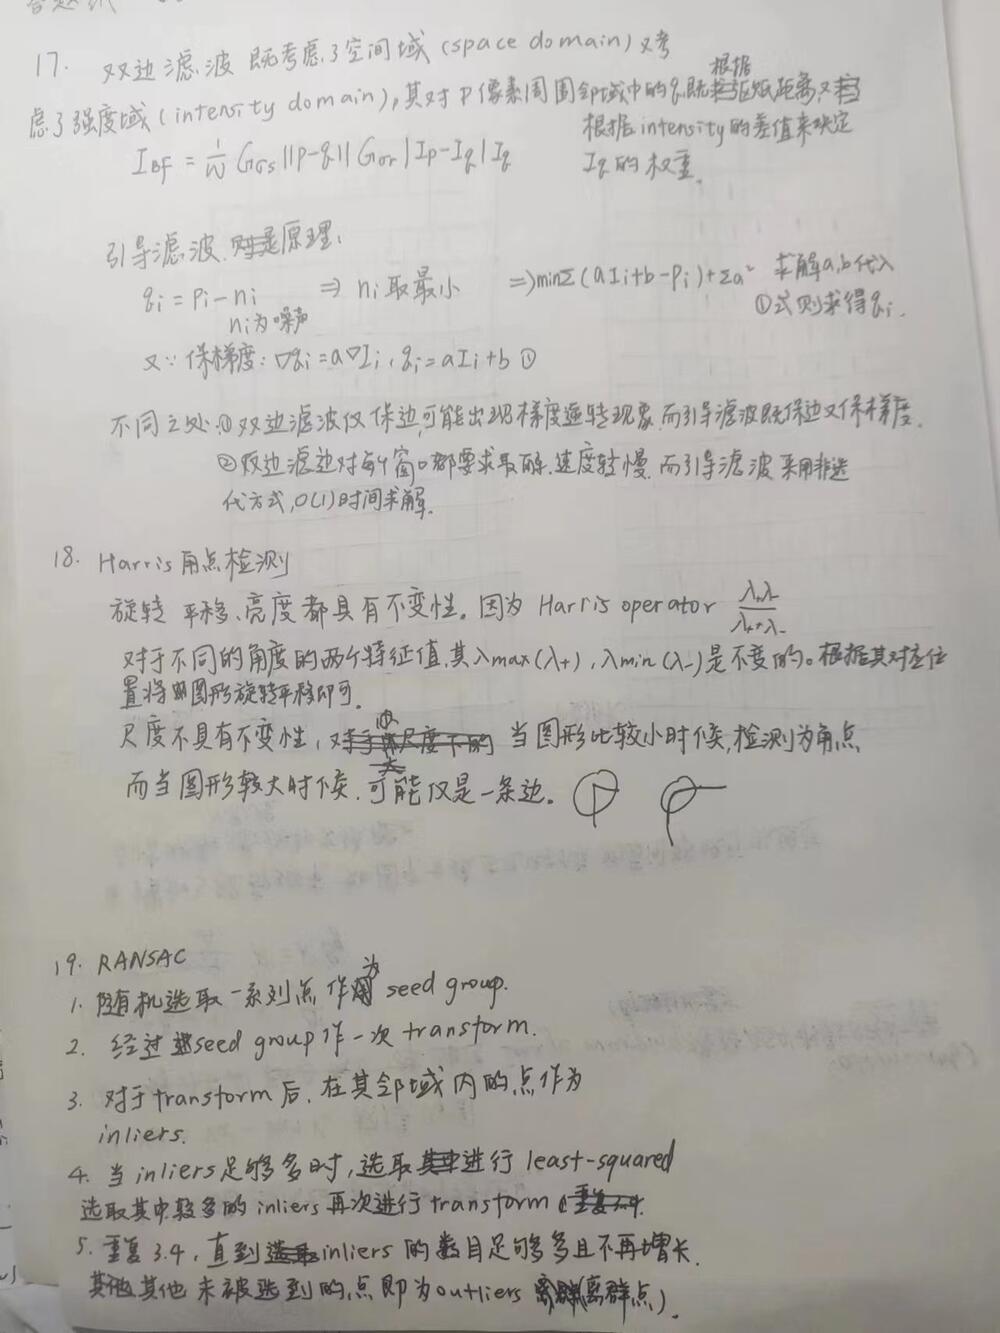 17. 双边滤波 既考虑了空间域(space domain)又考
虑了强度域(intensity domain),其对P像素周围邻域中的q,既根据距离,又
根据intensity的差值来决定
Iq的权重.
IBF = 1/W Gσs ||p-q|| Gσr |Ip-Iq| Iq
引导滤波 原理:
qi = pi - ni ⇒ ni取最小 ⇒ minΣ(aIi+b-pi)+Σa² 求解a,b代入
ni为噪声 ①式则求得qi.
又∵保梯度: ∇qi=a∇Ii, qi=aIi+b ①
不同之处:①双边滤波仅保边,可能出现梯度逆转现象,而引导滤波既保边又保梯度.
②双边滤边对每个窗口都要求解,速度较慢,而引导滤波采用非迭
代方式,O(1)时间求解.
18. Harris角点检测
旋转 平移、亮度都具有不变性。因为Harris operator λ+λ-/λ++λ-
对于不同的角度的两个特征值,其λmax(λ+),λmin(λ-)是不变的。根据其对应位
置将图形旋转平移即可.
尺度不具有不变性, 当图形比较小时候,检测为角点
而当图形较大时候,可能仅是一条边。
19. RANSAC
1. 随机选取一系列点作为 seed group.
2. 经过seed group作一次transform.
3. 对于transform后,在其邻域内的点作为
inliers.
4. 当inliers足够多时,选取进行 least-squared
选取其中较多的inliers再次进行transform
5. 重复3.4,直到inliers的数目足够多且不再增长.
其他未被选到的点即为outliers (离群点).